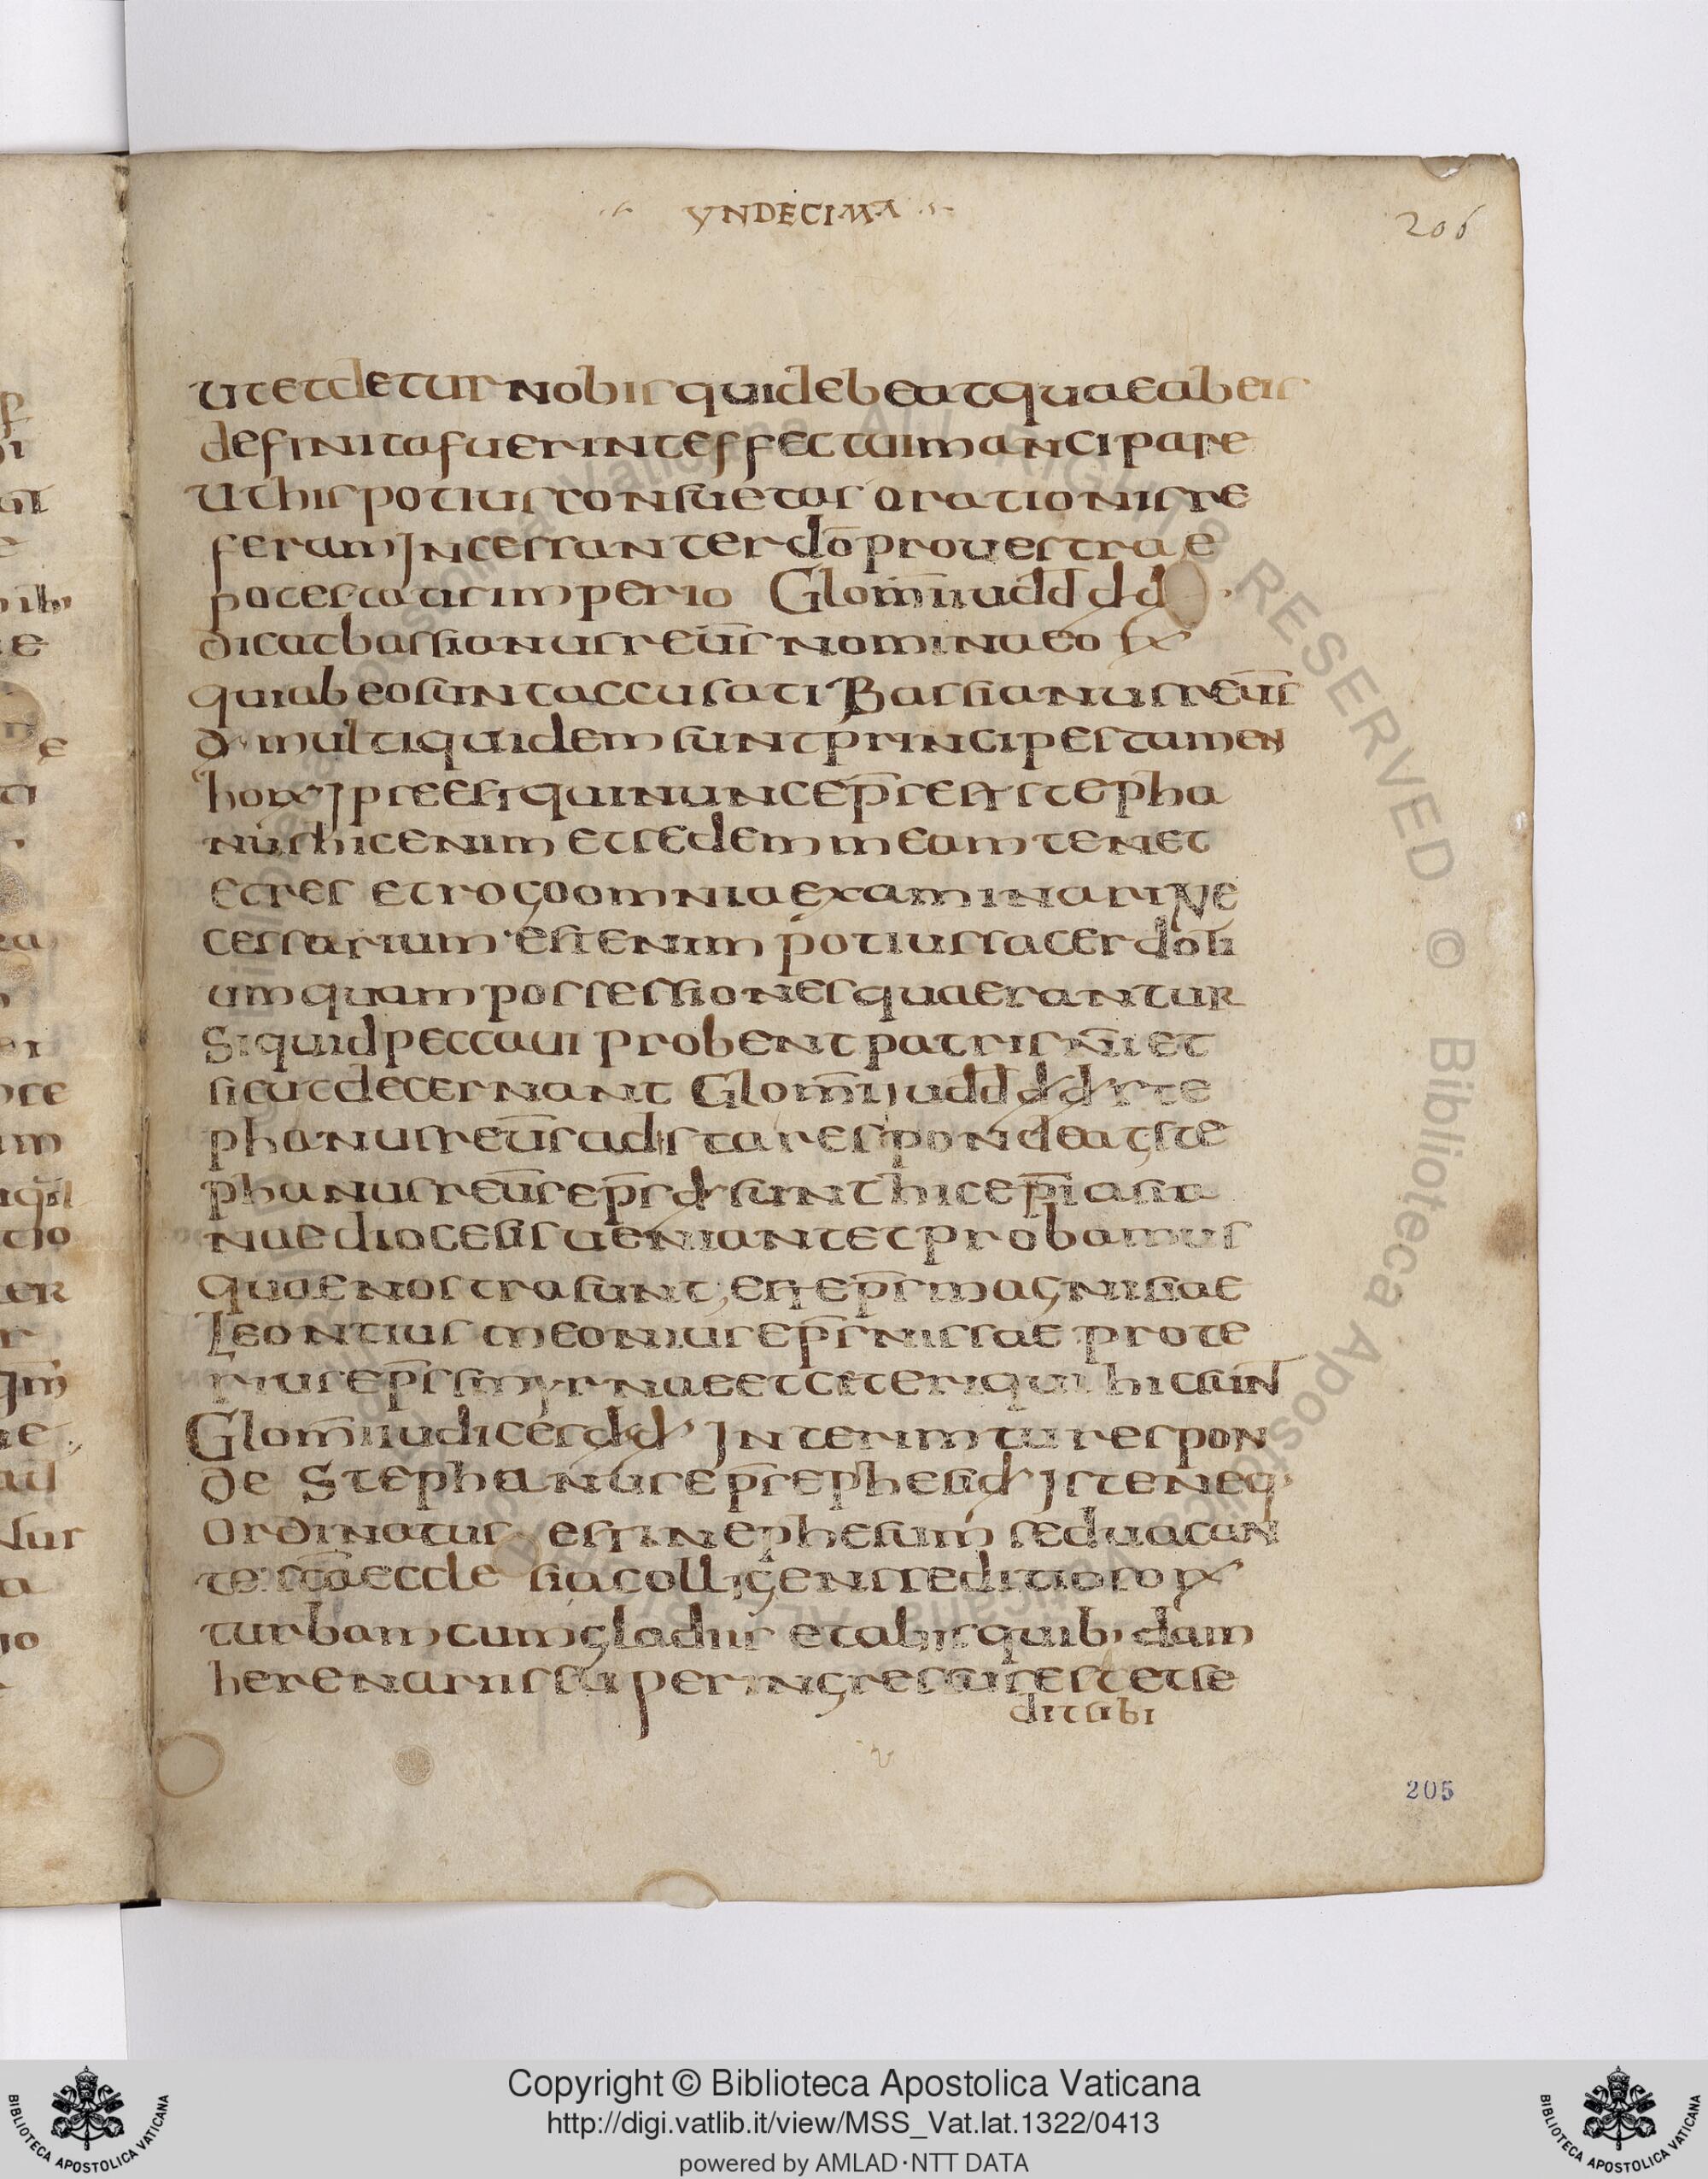 YNDECIMA
206
ut et detur nobis qui debeat quae ab eis
definita fuerint effectui mancipare
ut his potius consuetas orationis re
feram Incessanter dō pro vestrae
potestatis imperio Glom̄ iudd dd
dicat bassianus reūs nomina eo ꝝ
qui ab eo sunt accusati Bassianus reūs
d multi quidem sunt principes tamen
hoꝝ Ipse est qui nunc ep̄s est stepha
nus hic enim et sedem meam tenet
et res et rogo omnia examinari Ne
cessarium est enim potius sacerdoti
um quam possessiones quaerantur
Si quid peccavi probent patris n̄i et
sicut decernant Glom̄ iudd dd ste
phanus reūs adista respondeat ste
phanus reūs ep̄s d sunt hic ep̄i asia
nae diocesis veniant et probamus
quae nostra sunt; est ep̄s magnisiae
Leontius meonius ep̄s nissae prote
rius ep̄s smyrnae et ceteri qui hic sunt
Glom̄ iudices dd Interim tu respon
de Stephanus ep̄s ephesi d Iste neq·
ordinatus est in ephesum sed vacan
te sc̄a ecclesia colligens seditioso ꝝ
turbam cum gladiis et abis quib; dam
herenariis superingressus est et se
dit sibi
205
Copyright © Biblioteca Apostolica Vaticana
http://digi.vatlib.it/view/MSS_Vat.lat.1322/0413
powered by AMLAD·NTT DATA
BIBLIOTECA APOSTOLICA VATICANA
BIBLIOTECA APOSTOLICA VATICANA